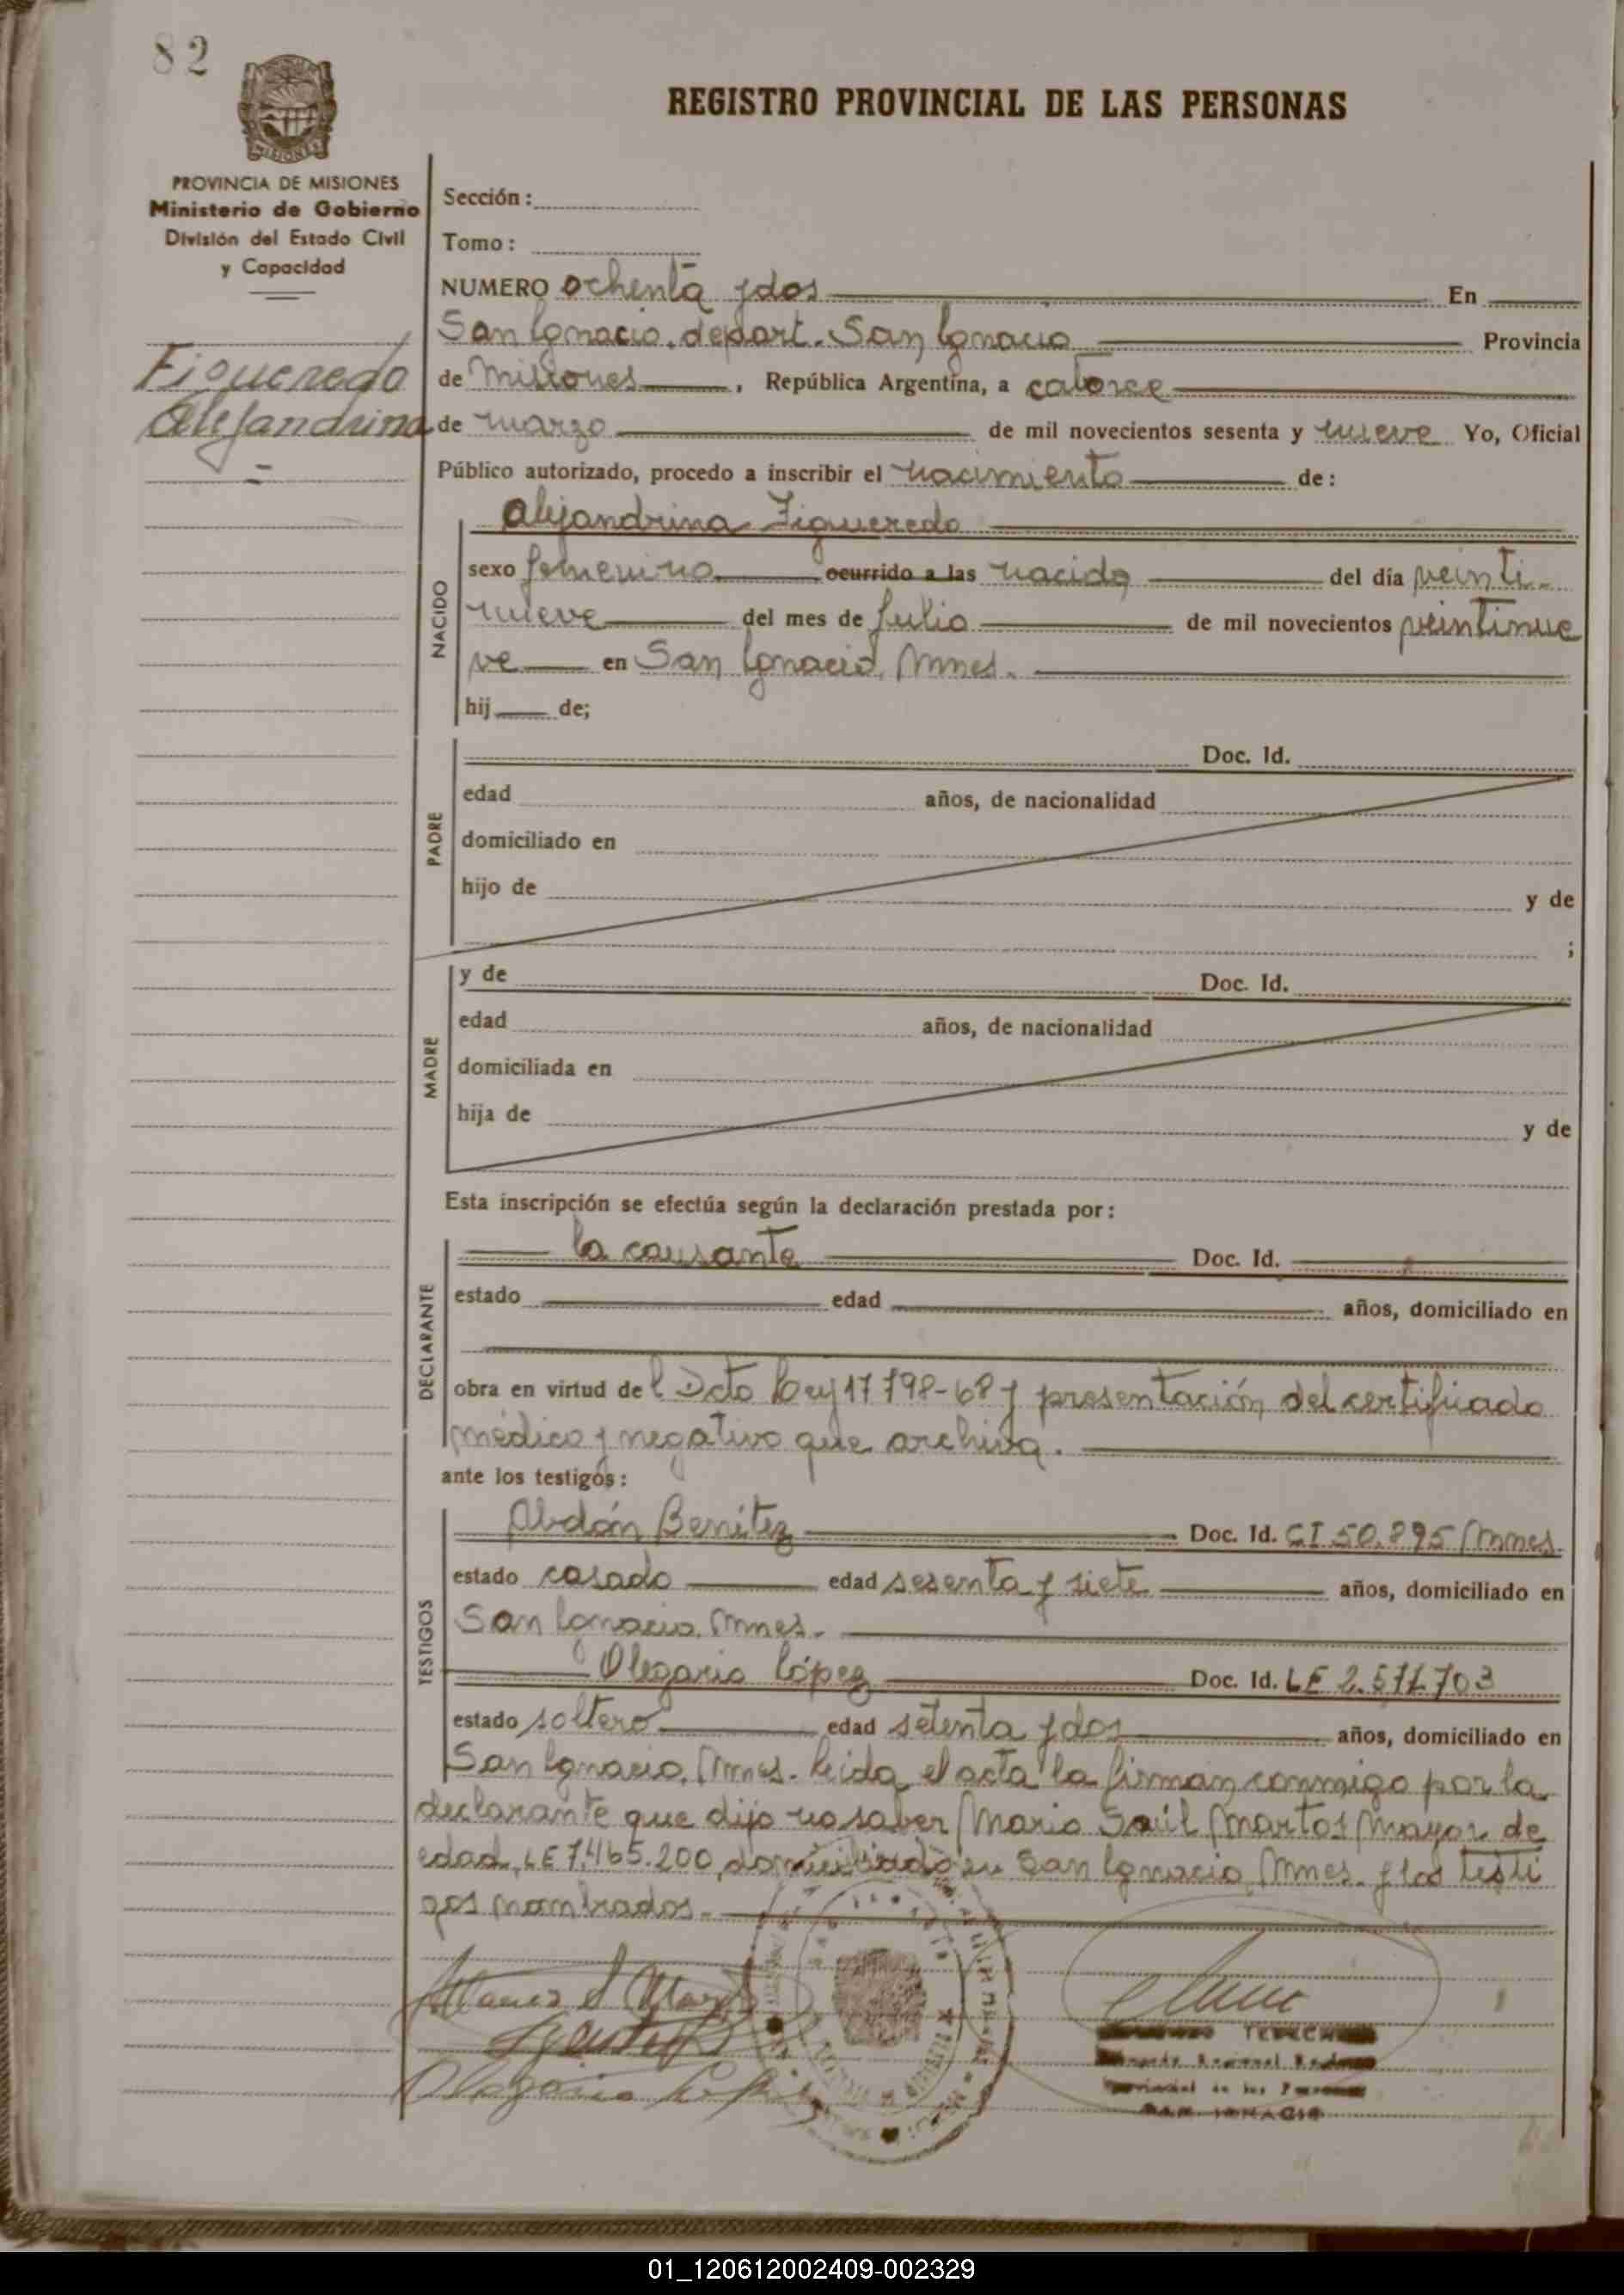 82
MISIONES
REGISTRO PROVINCIAL DE LAS PERSONAS
PROVINCIA DE MISIONES
Ministerio de Gobierno
División del Estado Civil
y Capacidad
Figueredo
Alejandrina
Sección:
Tomo:
NUMERO ochenta y dos En
San Ignacio, depart. San Ignacio Provincia
de Misiones, República Argentina, a catorce
de marzo de mil novecientos sesenta y nueve Yo, Oficial
Público autorizado, procedo a inscribir el nacimiento de:
NACIDO
Alejandrina Figueredo
sexo femenino ocurrido a las nacida del día veinti-
nueve del mes de Julio de mil novecientos veintinue
ve en San Ignacio, Mnes.
hij de;
PADRE
Doc. Id.
edad años, de nacionalidad
domiciliado en
hijo de y de
;
MADRE
y de Doc. Id.
edad años, de nacionalidad
domiciliada en
hija de y de
Esta inscripción se efectúa según la declaración prestada por:
DECLARANTE
la causante Doc. Id.
estado edad años, domiciliado en
obra en virtud del Dcto Ley 17798-68 y presentación del certificado
médico y negativo que archiva.
ante los testigos:
TESTIGOS
Abdón Benítez Doc. Id. CI 50.895 Mnes.
estado casado edad sesenta y siete años, domiciliado en
San Ignacio, Mnes.
Olegario López Doc. Id. LE 2.571.703
estado soltero edad setenta y dos años, domiciliado en
San Ignacio, Mnes. Leida el acta la firman conmigo por la
declarante que dijo no saber Mario Saúl Martos, mayor de
edad, LE 7.465.200, domiciliado en San Ignacio, Mnes. y los testi
gos nombrados.
Olegario López
SAN IGNACIO
01_120612002409-002329